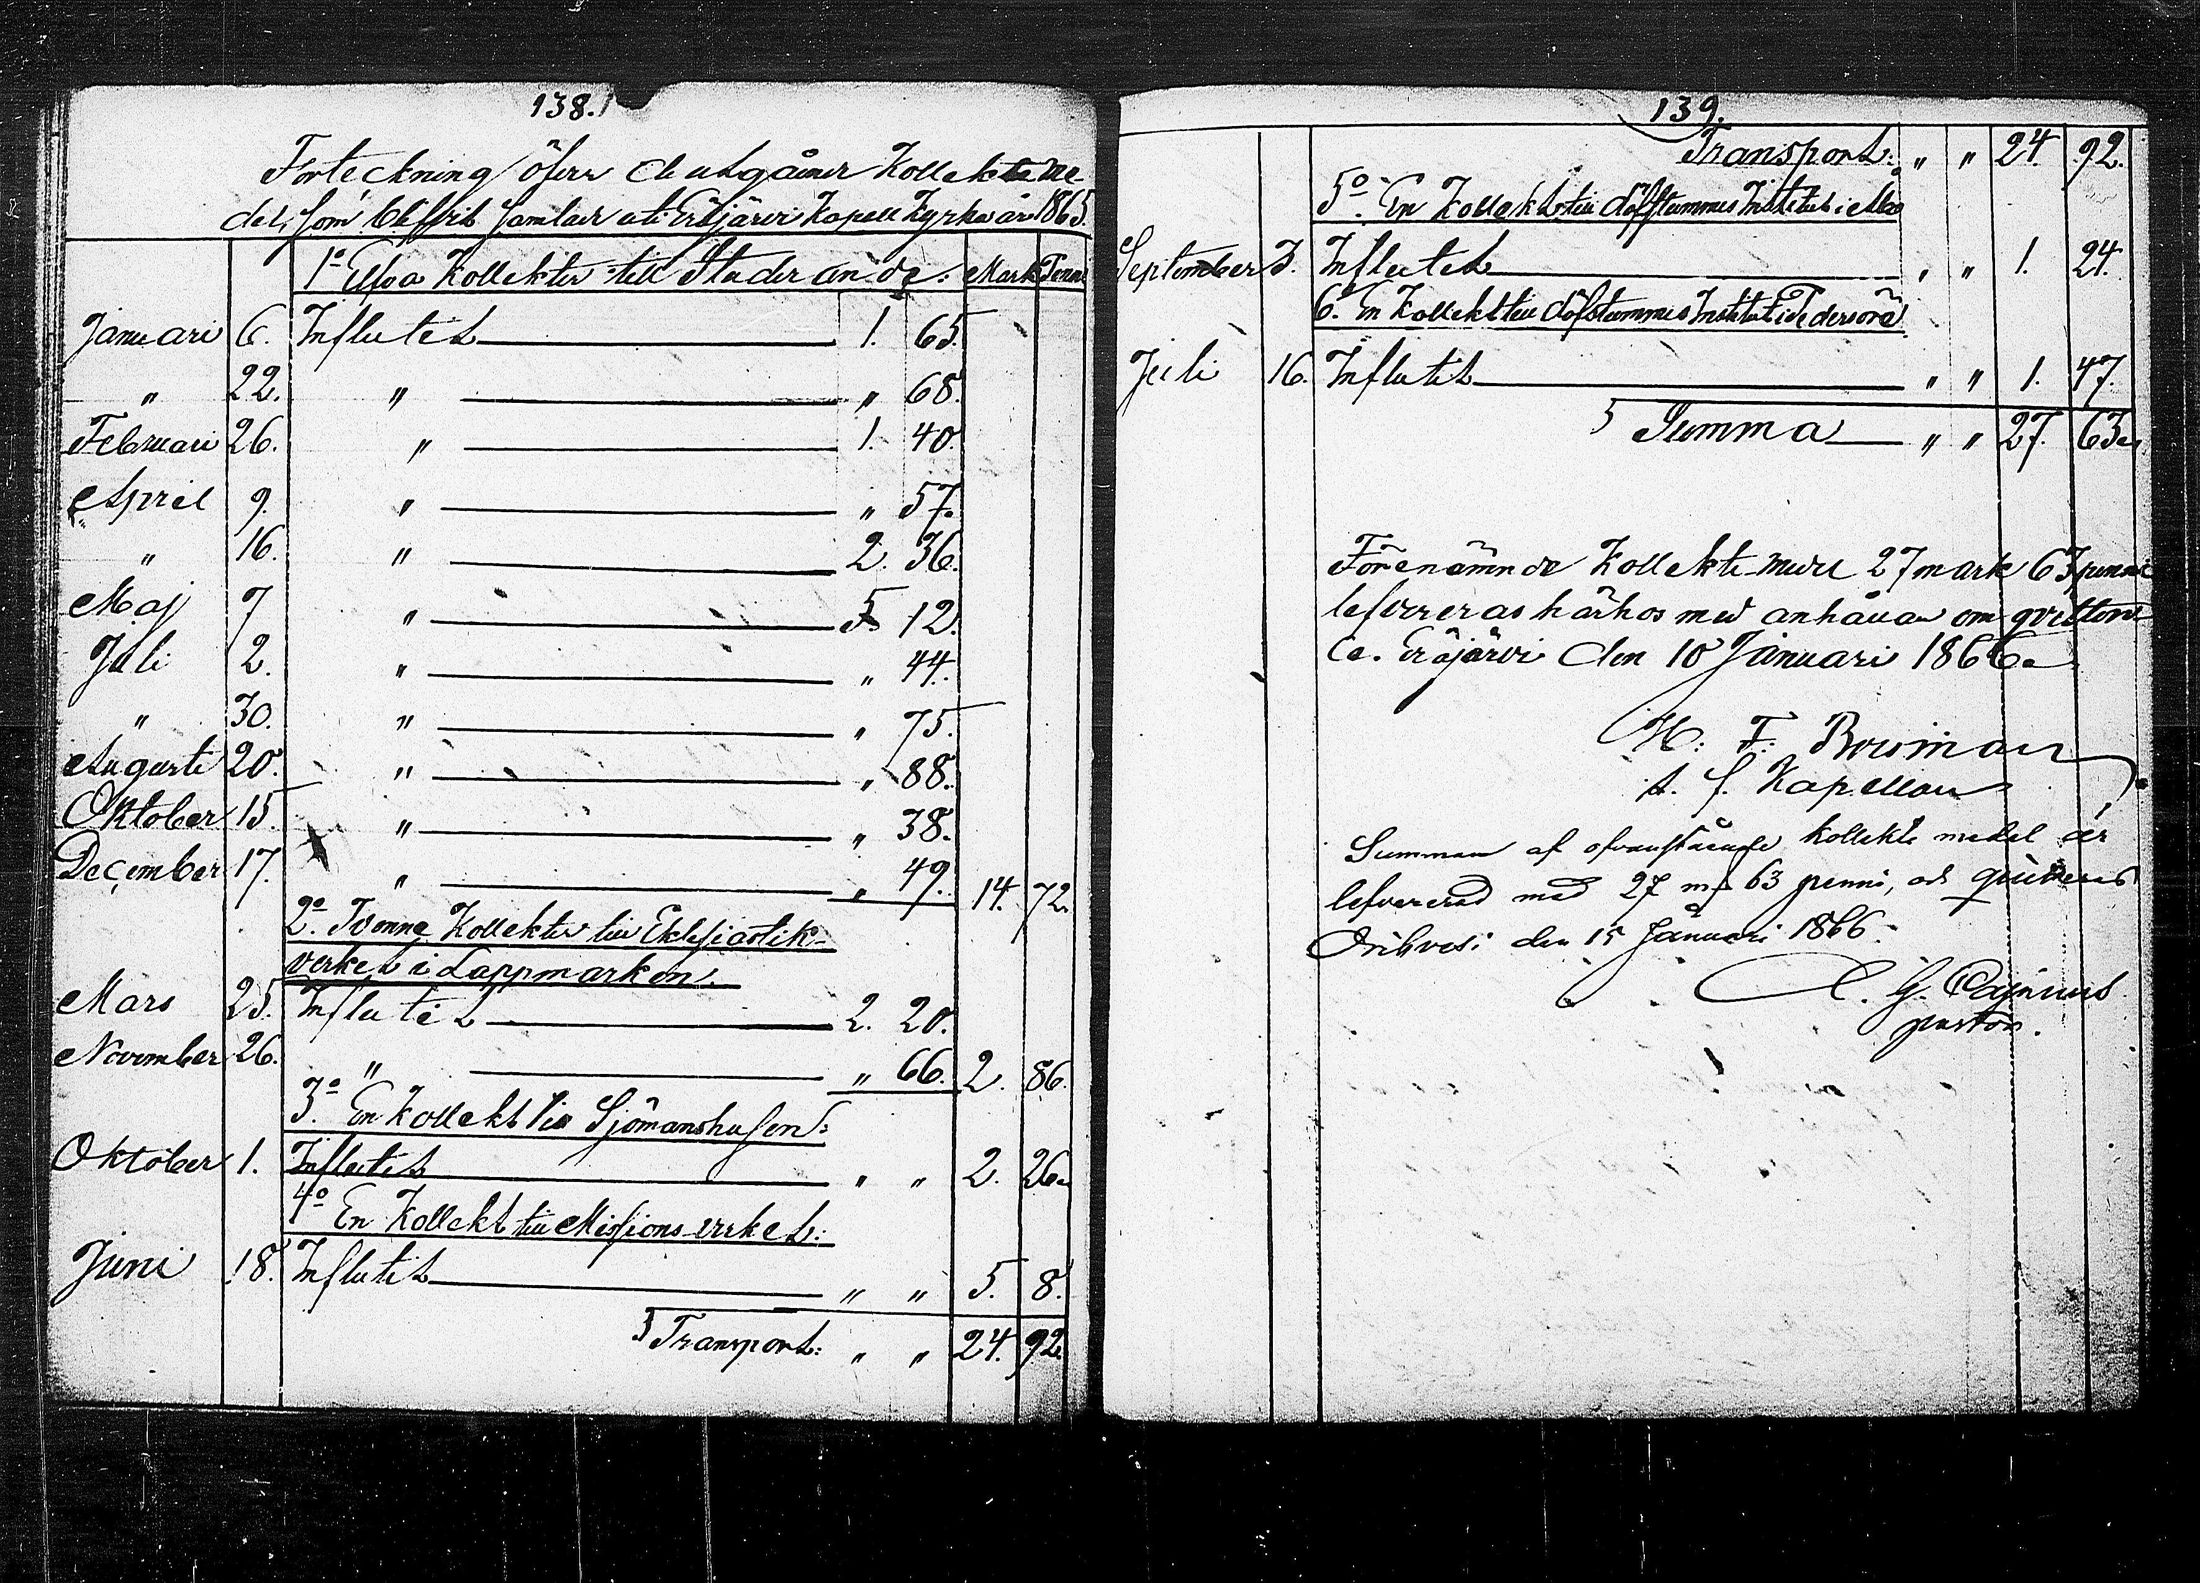 138.
Förteckning öfver de utgångne Kollekte me-
del, som blifvit samlade uti Eräjärvi Kapell Kyrka år 1865.
1º Elfva Kollekter till Studerande: Mark Penni
Januari 6. Influtet 1. 65.
" 22. " " 68.
Februari 26. " 1. 40.
April 9. " " 57.
" 16. " 2. 36.
Maj 7 " 5 12.
Juli 2. " " 44.
" 30. " " 75.
Augusti 20. " " 88.
Oktober 15. " " 38.
December 17. " " 49. 14. 72.
2º. Tvonne Kollekter till Eklesiastik-
verket i Lappmarken.
Mars 25. Influtet 2. 20.
November 26. " " 66. 2. 86.
3º. En Kollekt till Sjömanshusen:
Oktober 1. Influtet " " 2. 26.
4º En Kollekt till Missions-verket:
Juni 18. Influtit " " 5. 8.
Transport: " " 24. 92.
139.
Transport: " " 24. 92.
5º. En Kollekt till döfstummes Institut i Åbo
September 3. Influtet " " 1. 24.
6º. En Kollekt till döfstummes Institut i Pedersöre
Juli 16. Influtet " " 1. 47.
Summa " " 27. 63.
Förenämnde Kollekte-medel 27 mark 63 penni
lefvereras härhos med anhållan om qvitten-
ce. Eräjärvi den 10 Januari 1866.
H. F. Bowman
t. f. Kapellan
Summan af ofvanstående kollekte medel är
lefvererad med 27 mk 63 penni, och qvitteras
Orihvesi den 15 Januari 1866.
C. G. Cajanus
pastor.